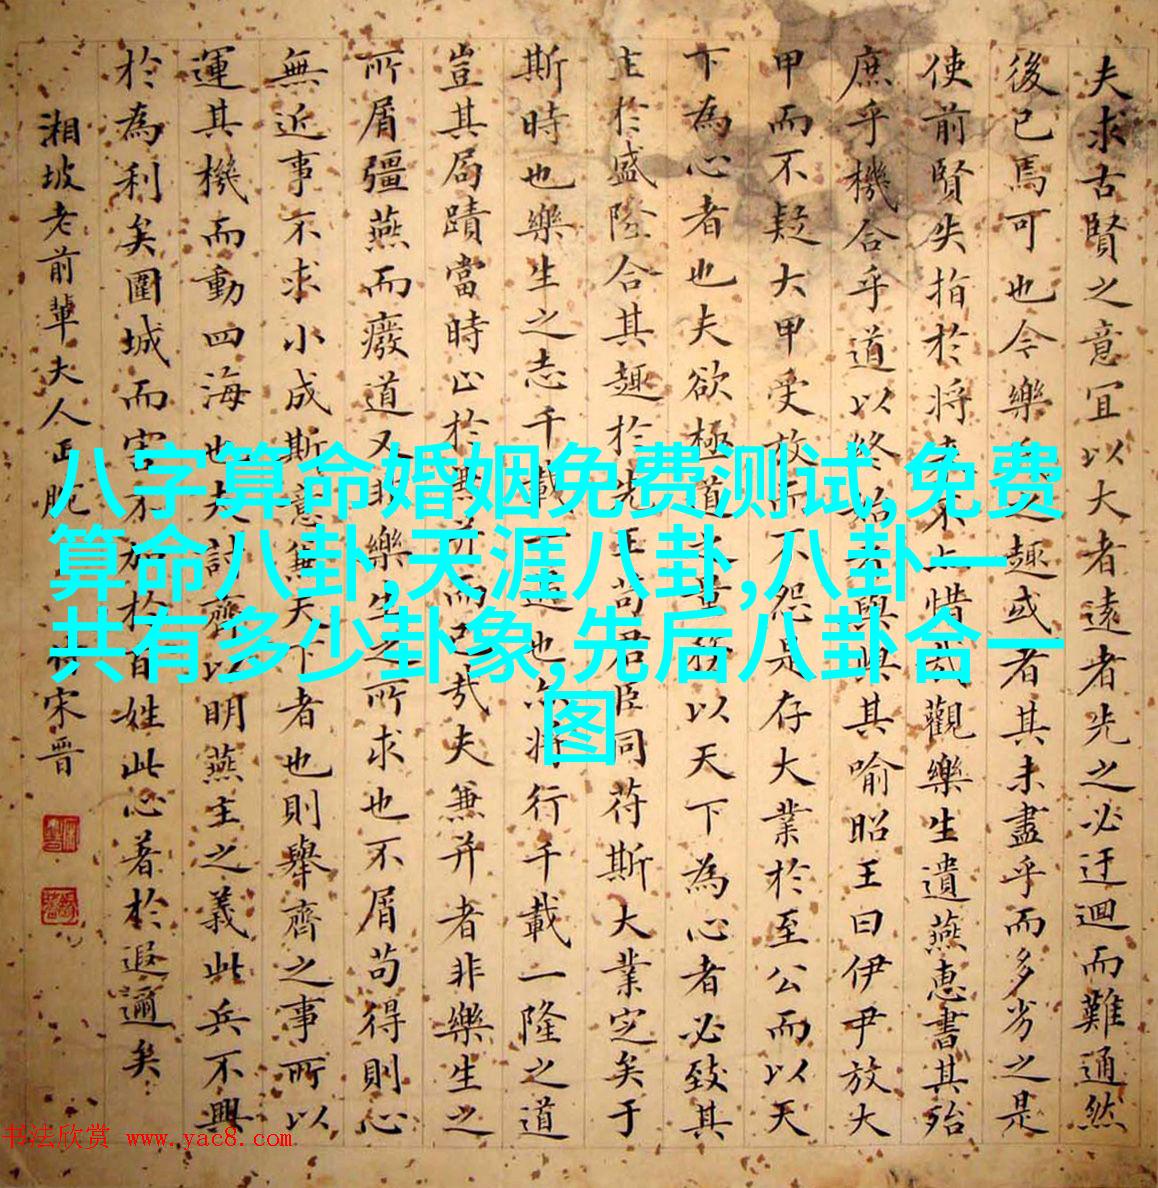 夫求古賢之意宜以大者遠者先之必迂迴而難通然
後已焉可也今樂
之趣或者其未盡乎而多劣之是
使前賢失指於將
不上惜哉觀樂生遺燕惠書其殆
庶乎機合乎道以終始者與
其喻昭王曰伊尹放大
甲而不疑大甲受放而不怨是存大業於至公而以天
下為心者也夫欲極道之量務以天下為心者必致其
主於盛隆合其趣於先王苟君臣同符斯大業定矣于
斯時也樂生之志千載一遇也亦將行千載一隆之道
豈其局蹟當時止於兼并而已哉夫兼并者非樂生之
所屑彊燕而廢道又非樂生之所求也不屑苟得則心
無近事不求小成斯意兼天下者也則舉齊之事所以
運其機而動四海也夫討齊以明燕主之義此兵不興
於為利矣圍城而害不加於百姓此心著於遐邇矣
湘坡老前輩夫人正腕
宋晋
八字算命婚姻免费测试,免费
算命八卦,天涯八卦,八卦一
共有多少卦象,先后八卦合一
图
书法欣赏 www.yac8.com